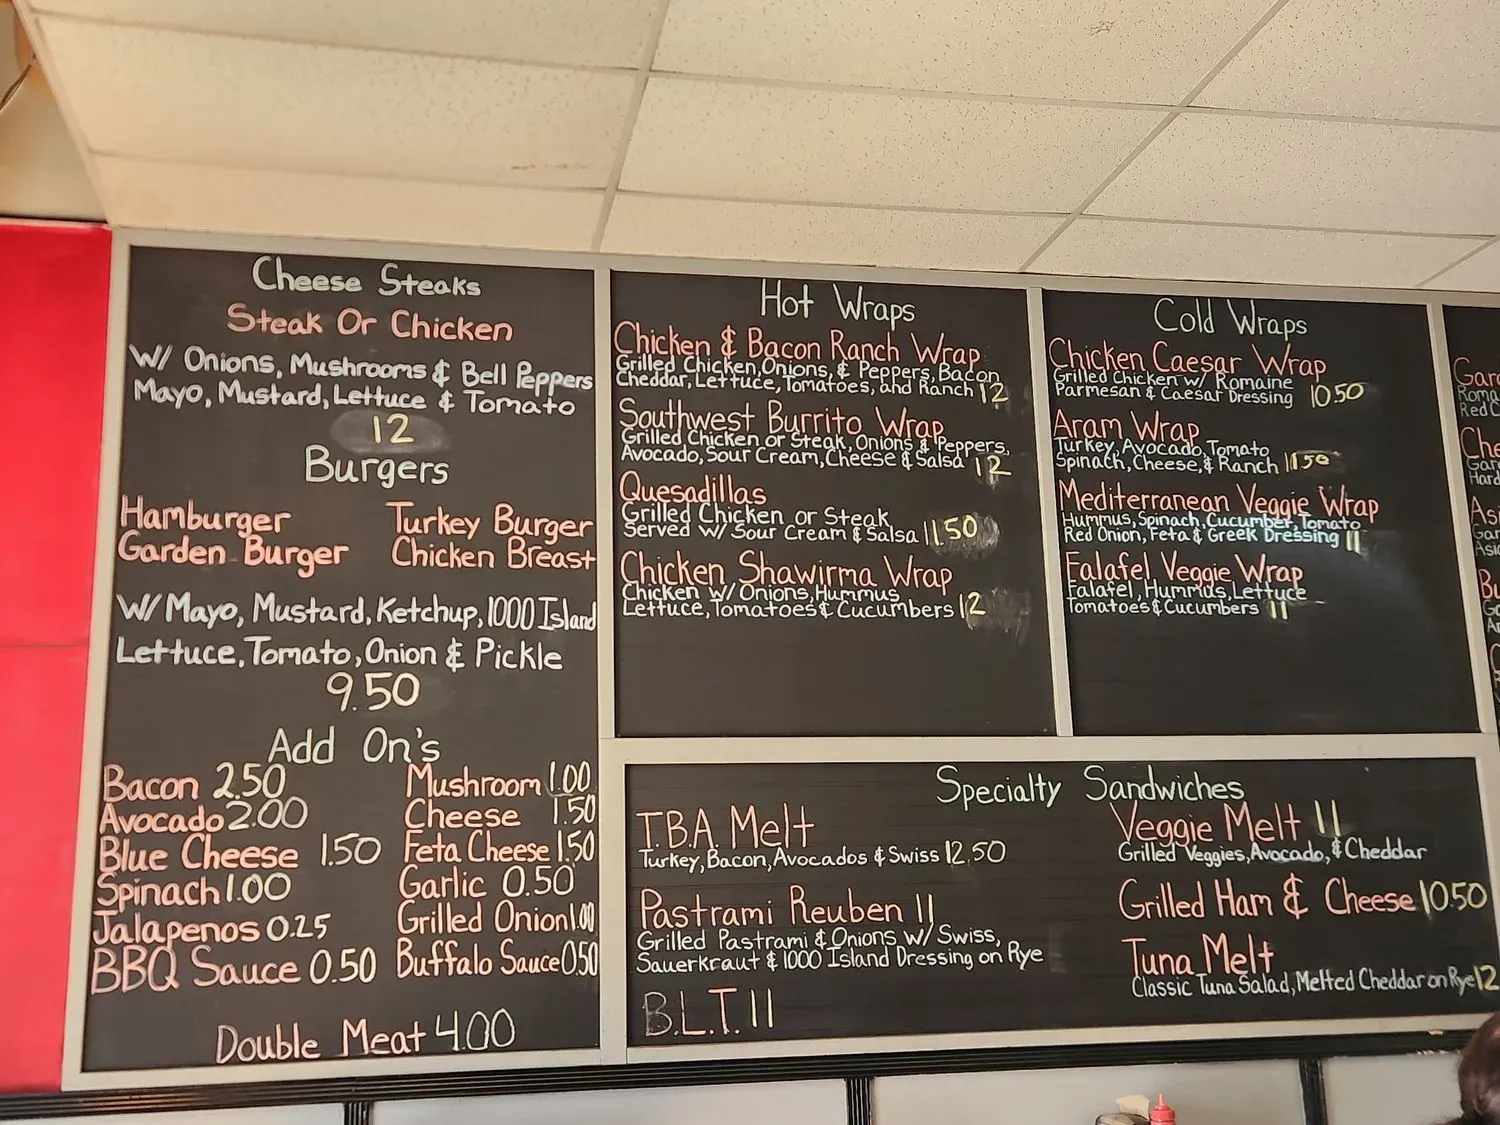 Cheese Steaks
Steak Or Chicken
W/ Onions, Mushrooms & Bell Peppers
Mayo, Mustard, Lettuce & Tomato
12
Burgers
Hamburger Turkey Burger
Garden Burger Chicken Breast
W/ Mayo, Mustard, Ketchup, 1000 Island
Lettuce, Tomato, Onion & Pickle
9.50
Add On's
Bacon 2.50 Mushroom 1.00
Avocado 2.00 Cheese 1.50
Blue Cheese 1.50 Feta Cheese 1.50
Spinach 1.00 Garlic 0.50
Jalapenos 0.25 Grilled Onion 1.00
BBQ Sauce 0.50 Buffalo Sauce 0.50
Double Meat 4.00
Hot Wraps
Chicken & Bacon Ranch Wrap
Grilled Chicken, Onions, & Peppers, Bacon
Cheddar, Lettuce, Tomatoes, and Ranch 12
Southwest Burrito Wrap
Grilled Chicken or Steak, Onions & Peppers,
Avocado, Sour Cream, Cheese & Salsa 12
Quesadillas
Grilled Chicken or Steak
Served W/ Sour Cream & Salsa 11.50
Chicken Shawirma Wrap
Chicken W/ Onions, Hummus
Lettuce, Tomatoes & Cucumbers 12
Cold Wraps
Chicken Caesar Wrap
Grilled Chicken w/ Romaine
Parmesan & Caesar Dressing 10.50
Aram Wrap
Turkey, Avocado, Tomato
Spinach, Cheese, & Ranch 11.50
Mediterranean Veggie Wrap
Hummus, Spinach, Cucumber, Tomato
Red Onion, Feta & Greek Dressing 11
Falafel Veggie Wrap
Falafel, Hummus, Lettuce
Tomatoes & Cucumbers 11
Specialty Sandwiches
T.B.A. Melt
Turkey, Bacon, Avocados & Swiss 12.50
Pastrami Reuben 11
Grilled Pastrami & Onions w/ Swiss,
Sauerkraut & 1000 Island Dressing on Rye
B.L.T. 11
Veggie Melt 11
Grilled Veggies, Avocado, & Cheddar
Grilled Ham & Cheese 10.50
Tuna Melt
Classic Tuna Salad, Melted Cheddar on Rye 12